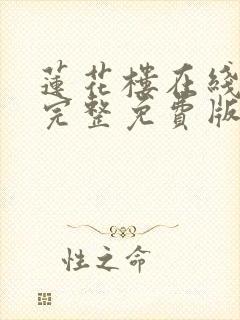 蓮花樓在綫
完整免費版
性之命